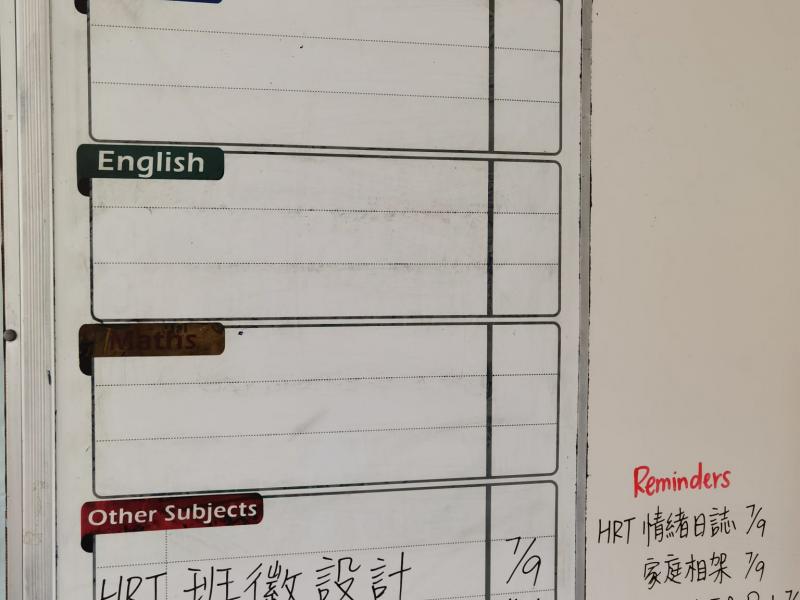 English
Maths
Other Subjects
HRT 班徽設計 7/9
Reminders
HRT 情緒日誌 7/9
家庭相架 7/9